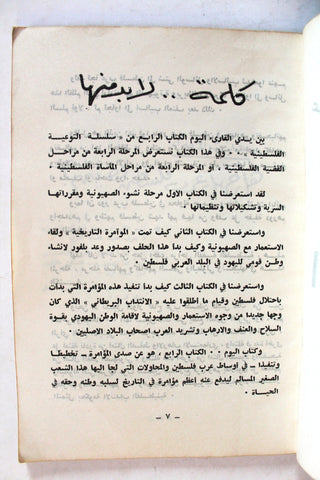 كلمة .. لابد منها
بين يدي القارىء اليوم الكتاب الرابع من « سلسلة التوعية
الفلسطينية » ٠٠ وفي هذا الكتاب نستعرض المرحلة الرابعة من مراحل
القضية الفلسطينية ، او المرحلة الرابعة من مراحل المأساة الفلسطينية ٠
لقد استعرضنا في الكتاب الاول مرحلة نشوء الصهيونية ومقرراتها
السرية وتشكيلاتها وتنظيماتها ٠
واستعرضنا في الكتاب الثاني كيف تمت « المؤامرة التاريخية » ولقاء
الاستعمار مع الصهيونية وكيف بدا هذا الحلف بصدور وعد بلفور لانشاء
وطن قومي لليهود في البلد العربي فلسطين ٠
واستعرضنا في الكتاب الثالث كيف بدا تنفيذ هذه المؤامرة التي بدأت
باحتلال فلسطين وقيام ما اطلقوا عليه « الانتداب البريطاني » الذي كان
وجها جديدا من وجوه الاستعمار والصهيونية لاقامة الوطن اليهودي بقوة
السلاح والعنف والارهاب وتشريد العرب اصحاب البلاد الاصليين ٠
وكتاب اليوم ٠٠ الكتاب الرابع ، هو عن صدى المؤامرة ــ تخطيطا
وتنفيذا ــ في اوساط عرب فلسطين والمحاولات التي لجا اليها هذا الشعب
الصغير المسالم ليدفع عنه اعظم مؤامرة في التاريخ لسلبه وطنه وحقه في
الحياة ٠
ــ ٧ ــ